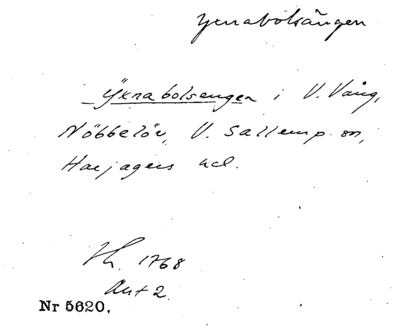 Yxnabolsängen
Yxnabolsengen i V. Vång,
Nöbbelöv, V. Sallerup sn,
Harjagers hd.
Lh. 1768
Akt 2.
Nr 5620.